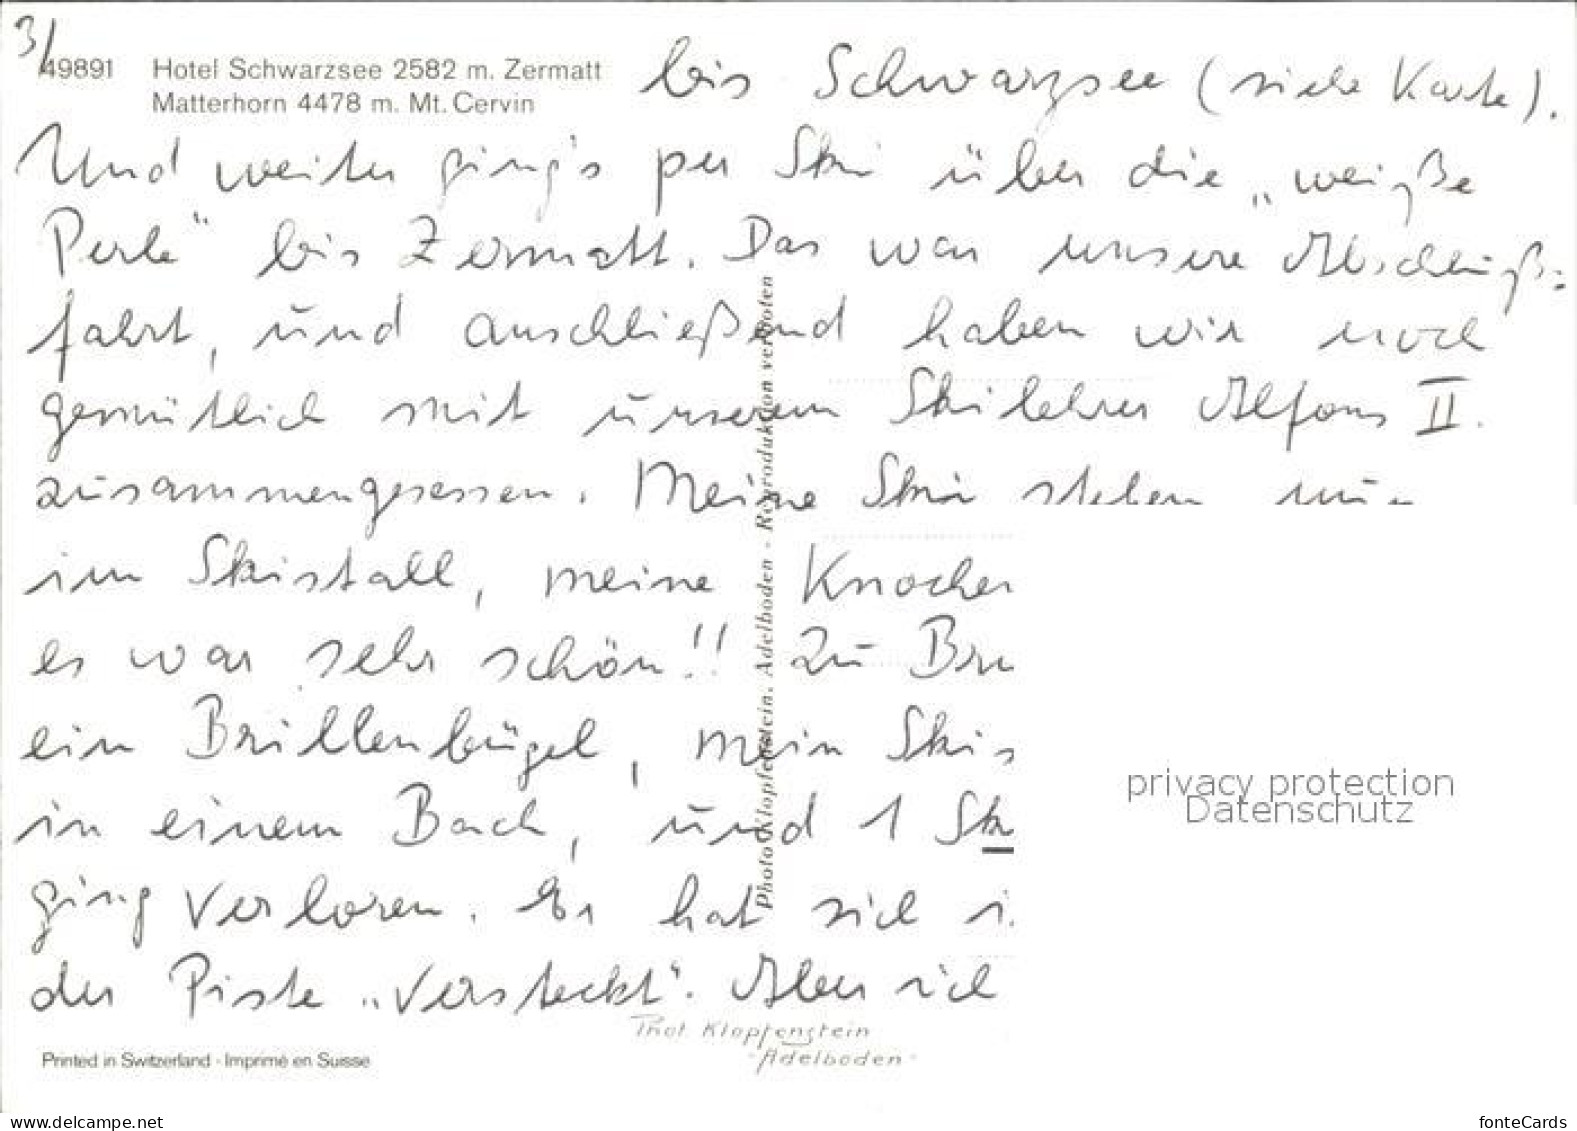 3/
49891 Hotel Schwarzsee 2582 m. Zermatt
Matterhorn 4478 m. Mt. Cervin
bis Schwarzsee (siehe Karte).
Und weiter ging's per Ski über die „weiße
Perle" bis Zermatt. Das war unsere Abschluß-
fahrt, und anschließend haben wir noch
gemütlich mit unserem Skilehrer Alfons II.
zusammengesessen. Meine Ski stehen nun
im Skistall, meine Knochen
es war sehr schön!! Zu Bru
ein Brillenbügel, mein Skis
in einem Bach, und 1 Sk
ging verloren. Er hat sich i
der Piste „versteckt". Aber ich
Photo Klopfenstein, Adelboden - Reproduktion verboten
Phot. Klopfenstein
"Adelboden"
Printed in Switzerland - Imprimé en Suisse
privacy protection
Datenschutz
www.delcampe.net
fonteCards